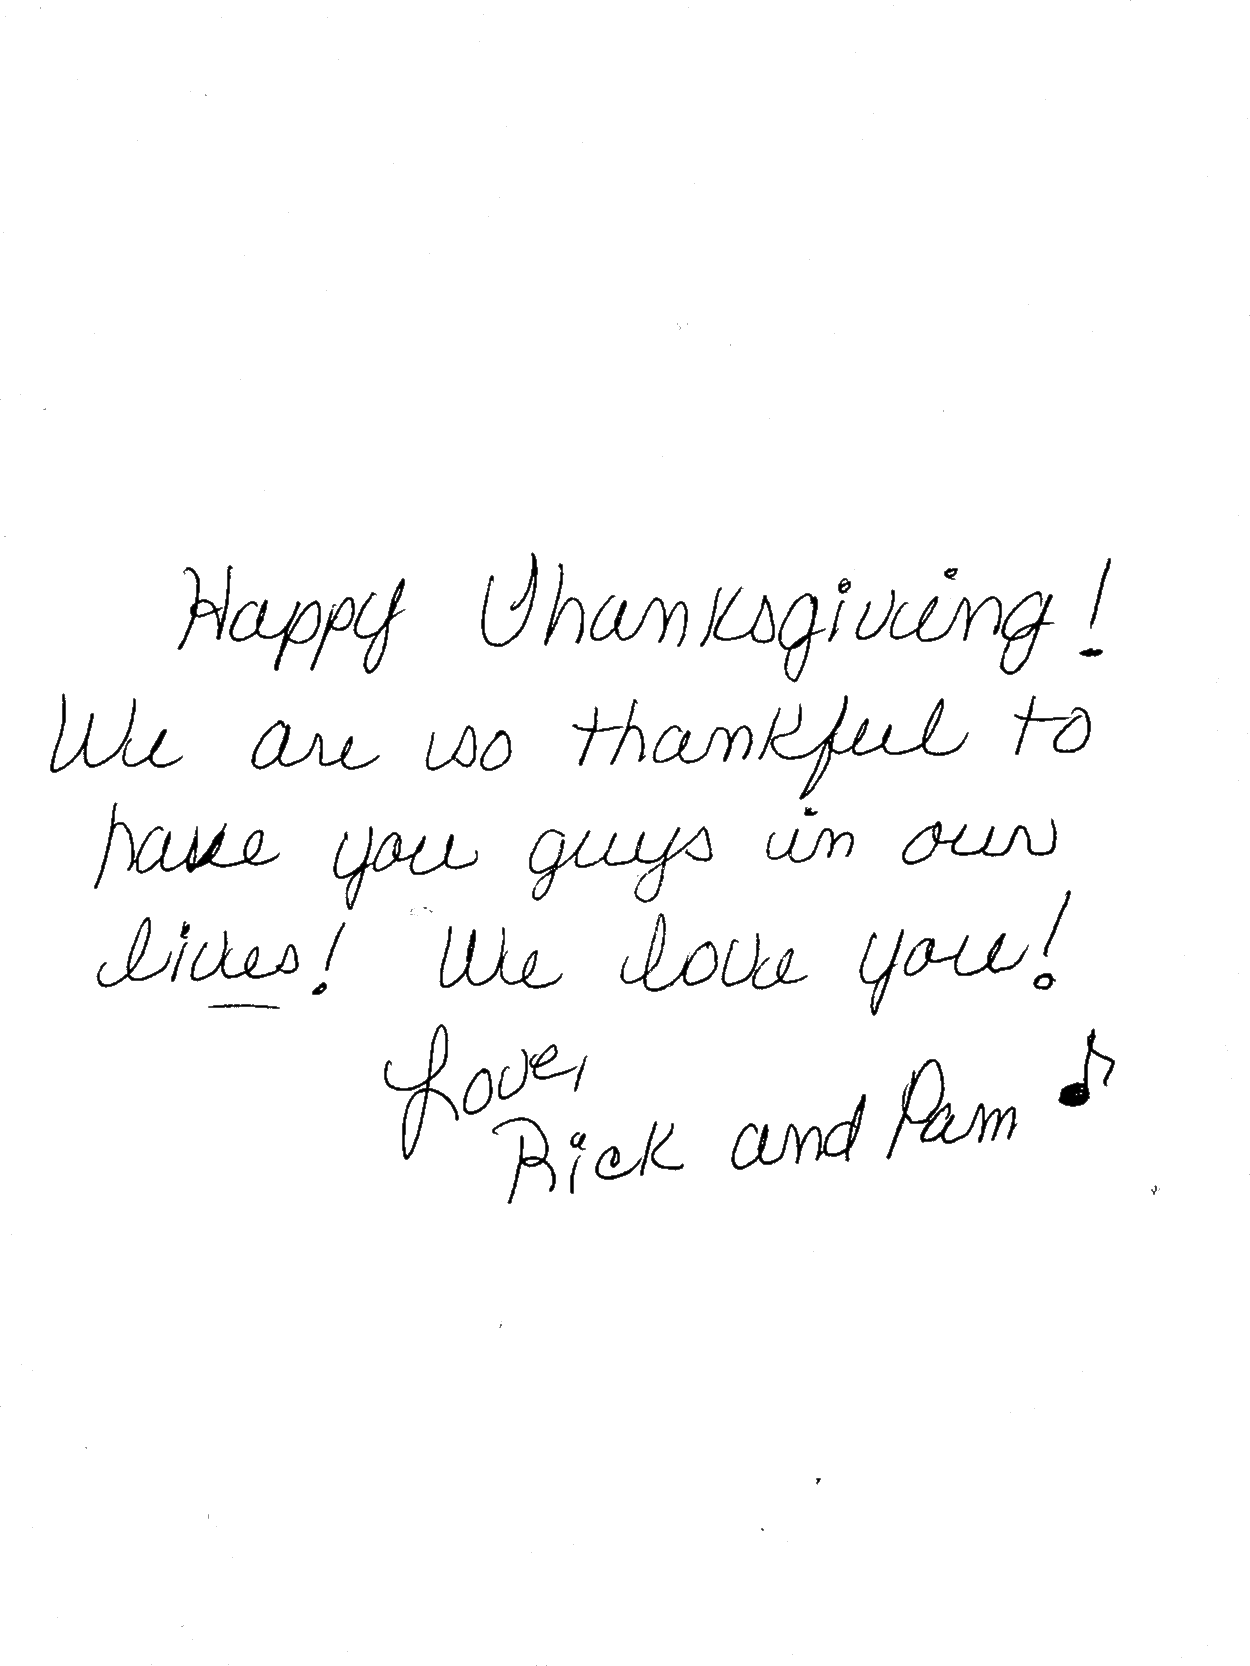 Happy Thanksgiving!
We are so thankful to
have you guys in our
lives! We love you!
Love,
Rick and Pam ♪